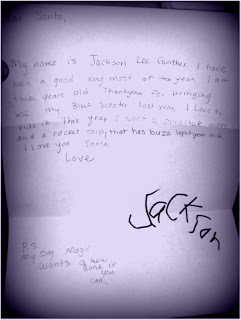 Dear Santa,
My name is Jackson Lee I have
been a good boy most of the year. I am
three years old. Thankyou for bringing
me my Blue Scooter last year, I Love to
ride it. This year I want a
and a rocket ship that has buzz lightyear in it
I Love you Santa
Love
JACKSON
P.S.
My Dog
wants a new
bone if
you
can.